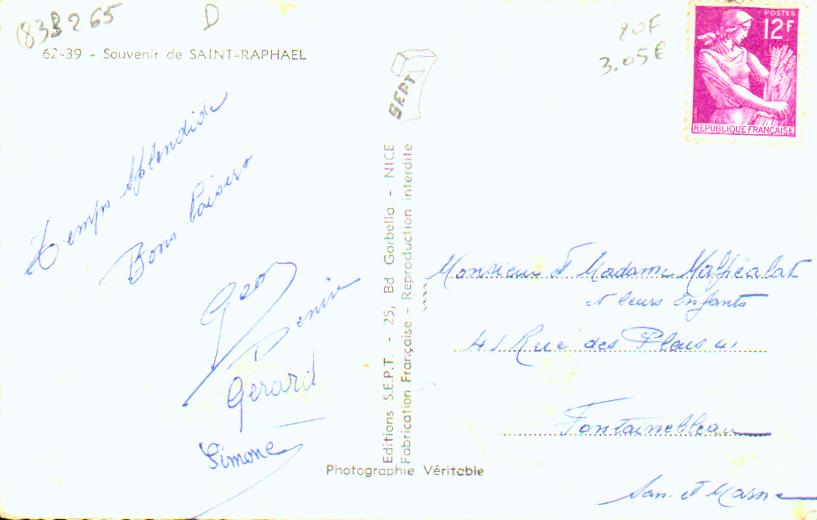 833265
D
62-39 - Souvenir de SAINT-RAPHAEL
Temps splendide
Bons baisers
Geo
Denise
Gérard
Simone
SEPT
Editions S.E.P.T. - 25, Bd Gorbella - NICE
Fabrication Française - Reproduction interdite
Photographie Véritable
20F
3.05€
POSTES
12F
REPUBLIQUE FRANÇAISE
Monsieur et Madame
et leurs enfants
41 Rue des
Fontainebleau
et Marne